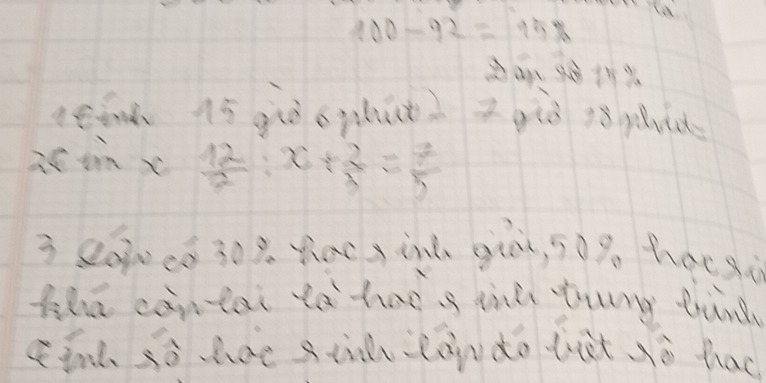 100 - 92 = 15%
Đáp số 15%
1 tính 15 giờ 6 phút - 7 giờ 18 phút =
2 tìm x 12/7 : x + 2/3 = 7/5
3 Lớp có 30% học sinh giỏi, 50% học
khá còn lại là học sinh trung bình
tính số học sinh lớp đó biết số học